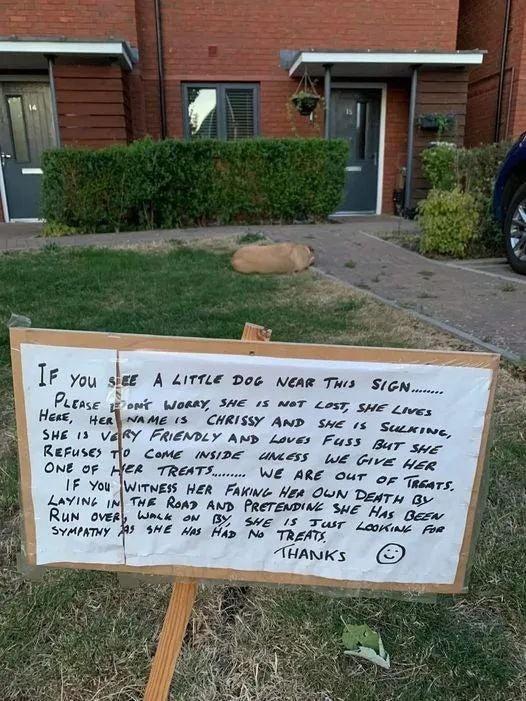 14
15
IF YOU SEE A LITTLE DOG NEAR THIS SIGN.......
PLEASE DON'T WORRY, SHE IS NOT LOST, SHE LIVES
HERE, HER NAME IS CHRISSY AND SHE IS SULKING,
SHE IS VERY FRIENDLY AND LOVES FUSS BUT SHE
REFUSES TO COME INSIDE UNLESS WE GIVE HER
ONE OF HER TREATS........ WE ARE OUT OF TREATS.
IF YOU WITNESS HER FAKING HER OWN DEATH BY
LAYING IN THE ROAD AND PRETENDING SHE HAS BEEN
RUN OVER, WALK ON BY, SHE IS JUST LOOKING FOR
SYMPATHY AS SHE HAS HAD NO TREATS.
THANKS